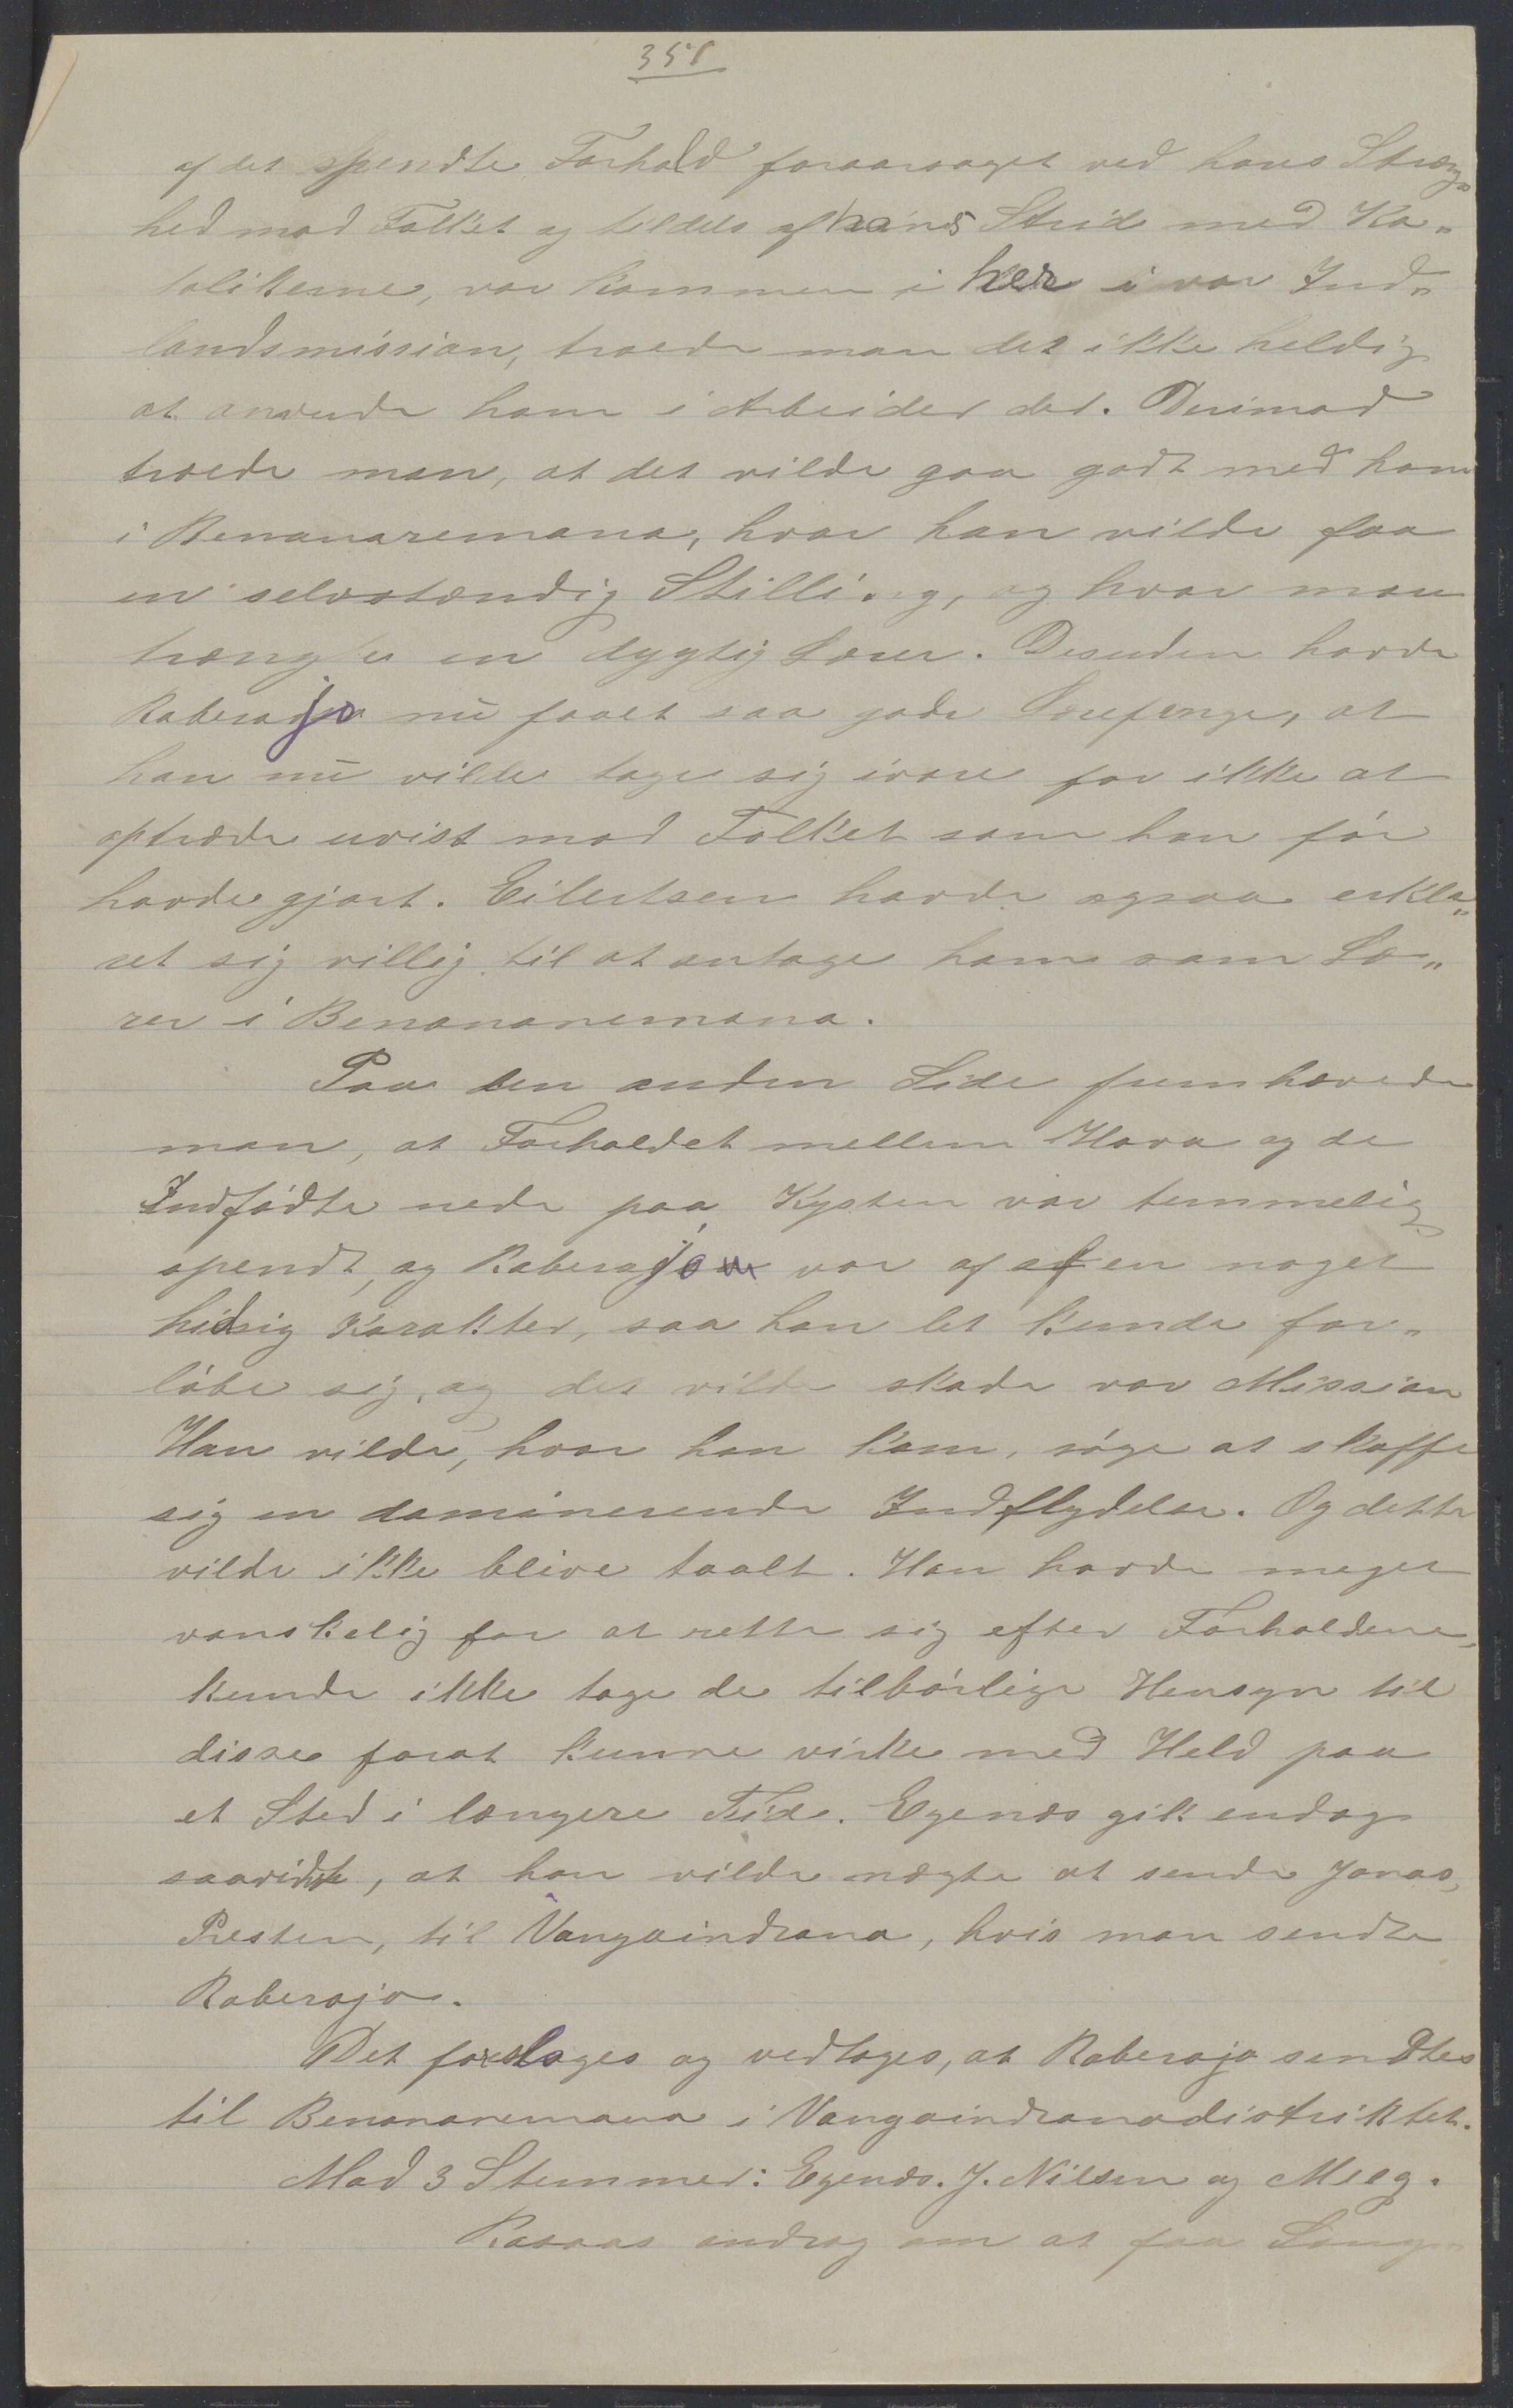 351
af det spendte Forhold foraarsaget ved hans Stræng„
hed mod Folket og tildels af hans Strid med Ka„
tolikerne, var kommen i her i vor Ind„
landsmission, troede man det ikke heldig
at anvende ham i Arbeidet der. Derimod
troede man, at det vilde gaa godt med ham
i Benanaremana, hvor han vilde faa
en selvstændig Stilling, og hvor man
trængte en dygtig Lærer. Desuden havde
Raberajo nu faaet saa gode Lærepenge, at
han nu vilde tage sig ivare for ikke at
optræde uvist mod Folket som han før
havde gjort. Eilertsen havde ogsaa erklæ„
ret sig villig til at antage ham som Læ„
rer i Benanaremana.
Paa den anden Side fremhævede
man, at Forholdet mellem Hova og de
Indfødte nede paa Kysten var temmelig
spendt, og Raberajo var af en noget
hidsig Karakter, saa han let kunde for„
løbe sig, og det vilde skade vor Mission
Han vilde, hvor han kom, søge at skaffe
sig en dominerende Indflydelse. Og dette
vilde ikke blive taalt. Han havde meget
vanskelig for at rette sig efter Forholdene,
kunde ikke tage de tilbørlige Hensyn til
disse forat kunne virke med Held paa
et Sted i længere Tid. Egenæs gik endog
saavidt, at han vilde nægte at sende Jonas,
Presten, til Vangaindrana, hvis man sendte
Raberajo.
Det foreslages og vedtoges, at Raberajo sendtes
til Benanaremana i Vangaindranadistriktet.
Mod 3 Stemmer: Egenæs. J. Nilsen og Meeg.
Rasoas androg om at faa